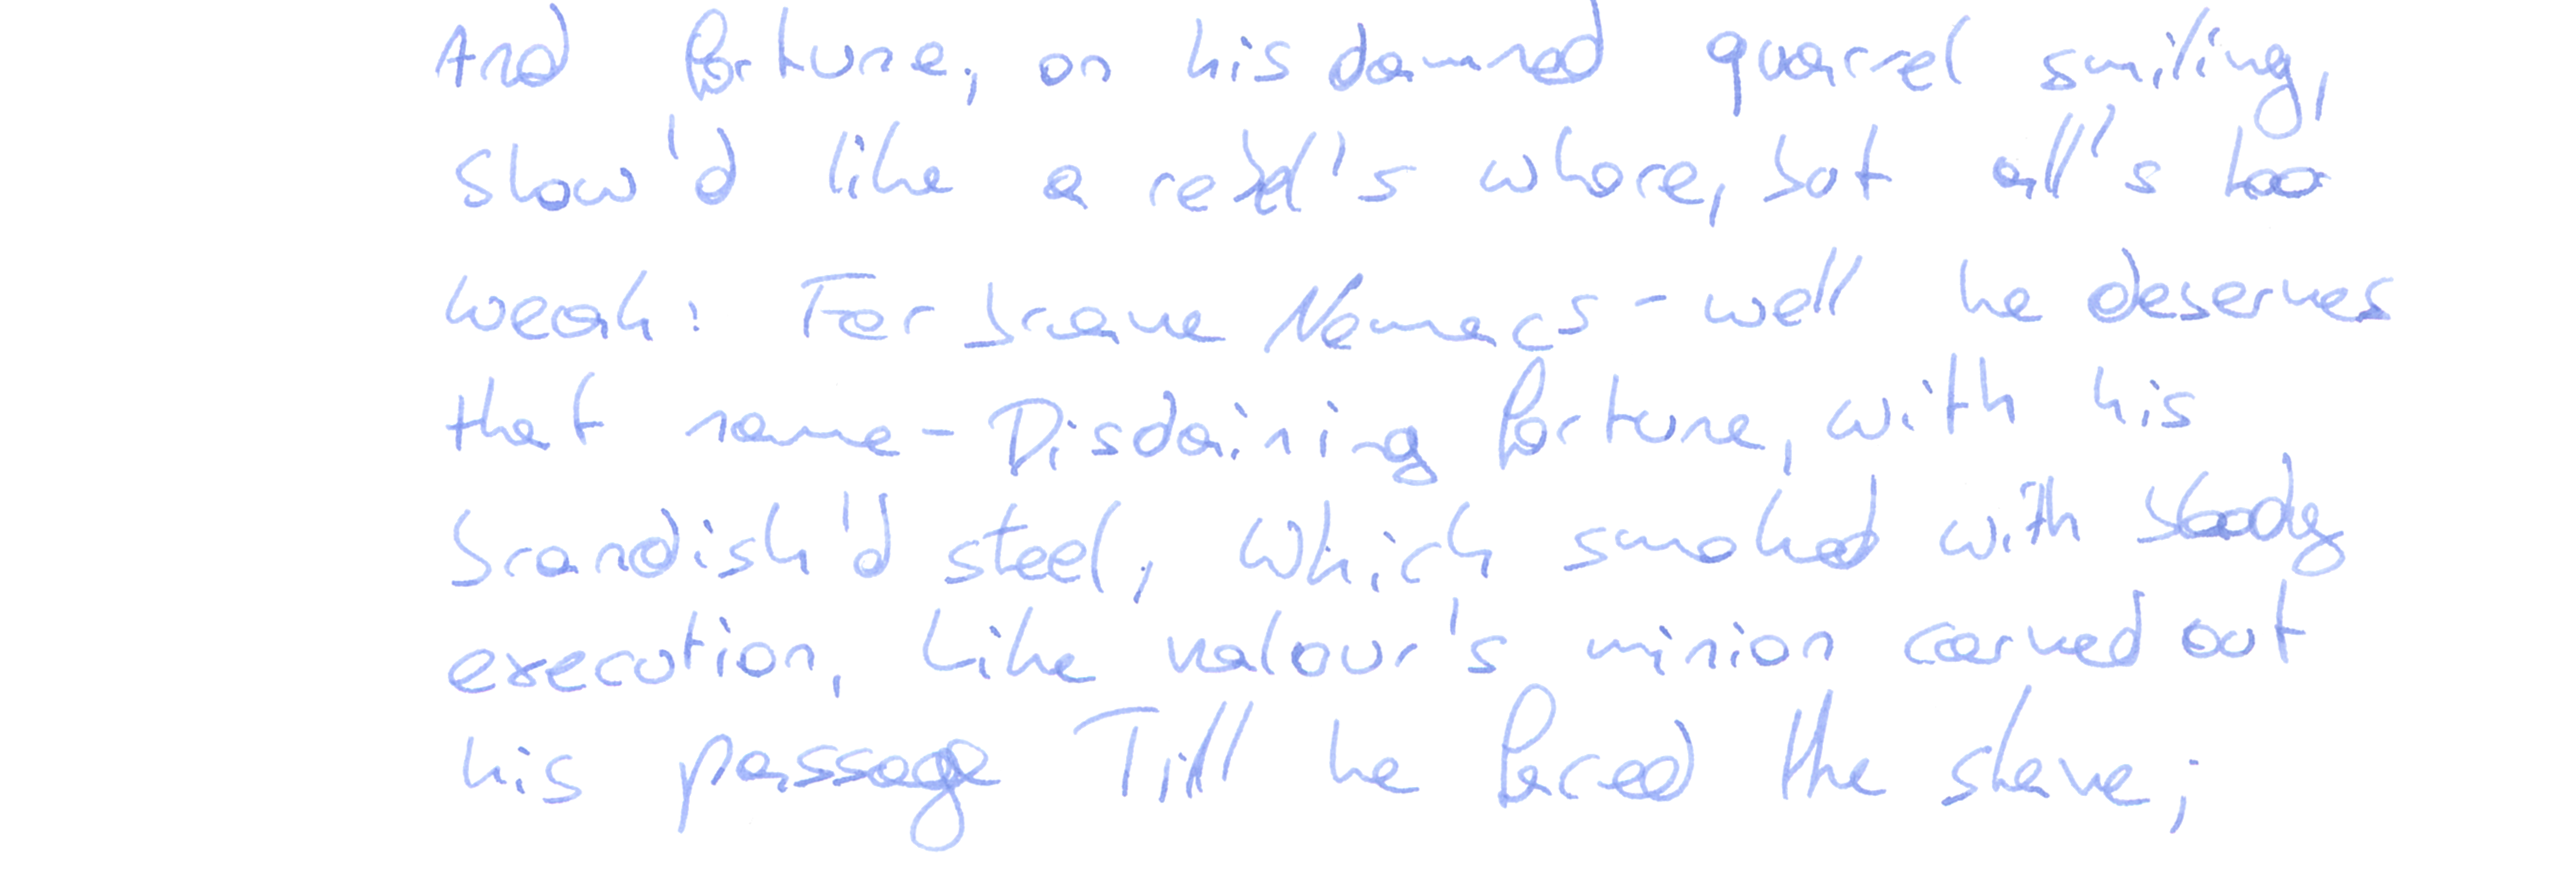 And fortune, on his damned quarrel smiling,
Show'd like a rebel's whore, but all's too
weak: For brave Nomacs - well he deserves
that name - Disdaining fortune, with his
brandish'd steel, Which smoked with bloody
execution, Like valour's minion carved out
his passage Till he faced the slave;